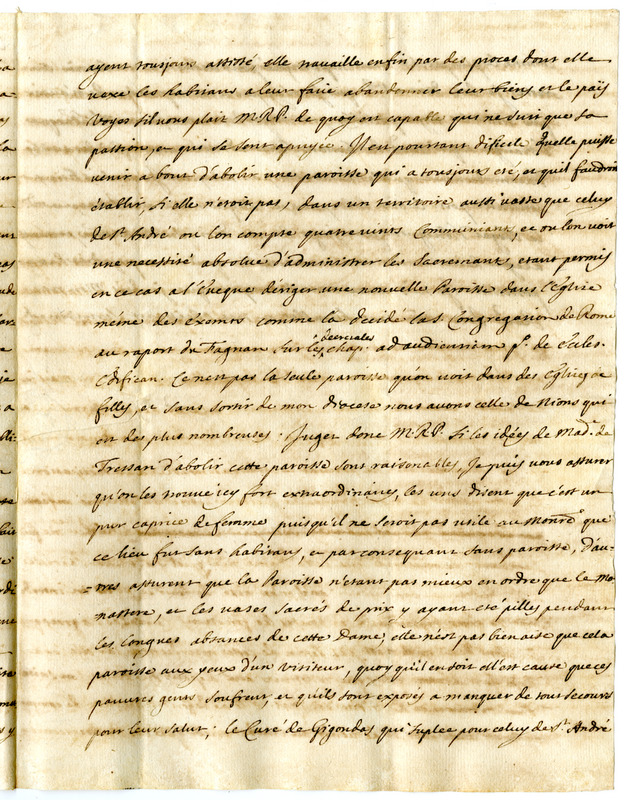 ayent tousjours assisté, elle travaille enfin par des proces dont elle
vexe les habitans a leur faire abandonner leur biens et le païs
Voyes s'il vous plait M.R.P. de quoy est capable qui ne suit que sa
passion, et qui se sent apuyée. Il est pourtant dificile quelle puisse
venir a bout d'abolir une paroisse qui a tousjours eté, et qu'il faudroit
etablir, si elle n'etoit pas, dans un territoire aussi vaste que celuy
de St. André ou lon compte quatrevints Communians, et ou lon voit
une necessité absolue d'administrer les Sacremans, etant permis
en ce cas a l'Eveque deriger une nouvelle Paroisse dans l'Eglise
méme des exemts comme la decidé la S. Congregation de Rome
au raport de Fagnan sur les decretales chap. ad audientiam de eccles.
Ædifican. Ce n'est pas la seule paroisse qu'on voit dans des Eglises de
filles, et sans sortir de mon diocese nous avons celle de Nions qui
est des plus nombreuses. Juges donc M.R.P. si les idées de Mad. de
Tressan d'abolir cette paroisse sont raisonables, Je puis vous assurer
qu'on les trouve icy fort extraordinaires, les uns disent que c'est un
pur caprice de femme puisqu'il ne seroit pas utile au Monre. que
ce lieu fut sans habitans, et par consequant sans paroisse, d'au-
=tres assurent que la Paroisse n'etant pas mieux en ordre que le mo
nastere, et les vases sacrés de prix y ayant eté pillés pendant
les longues absances de cette Dame, elle n'est pas bien aise que cela
paroisse aux yeux d'un visiteur, quoy qu'il en soit elle est cause que ces
pauvres gents soufrent, et qu'ils sont exposés a manquer de tout secours
pour leur salut; le Curé de Gigondas qui suplee pour celuy de St. André